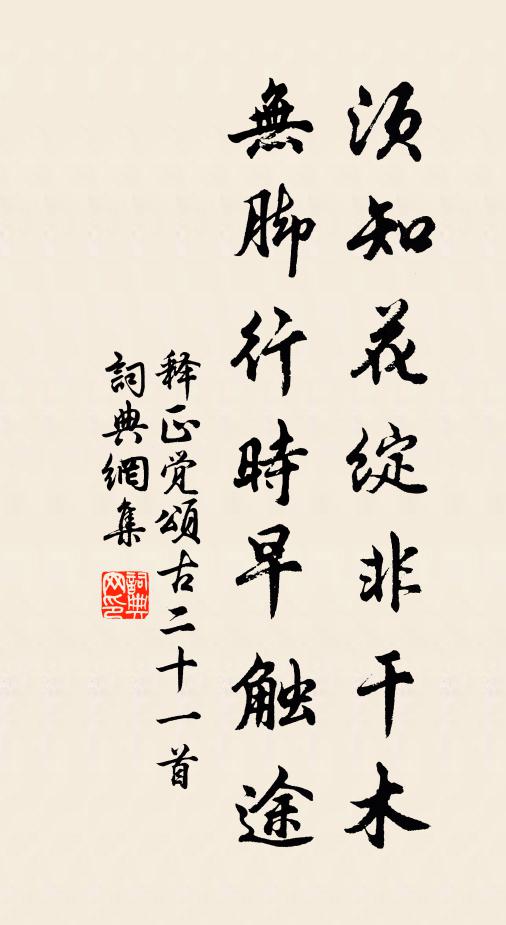 须知花綻非干木
無脚行時早触途
释正觉頌古二十一首
詞典網集
詞典網印